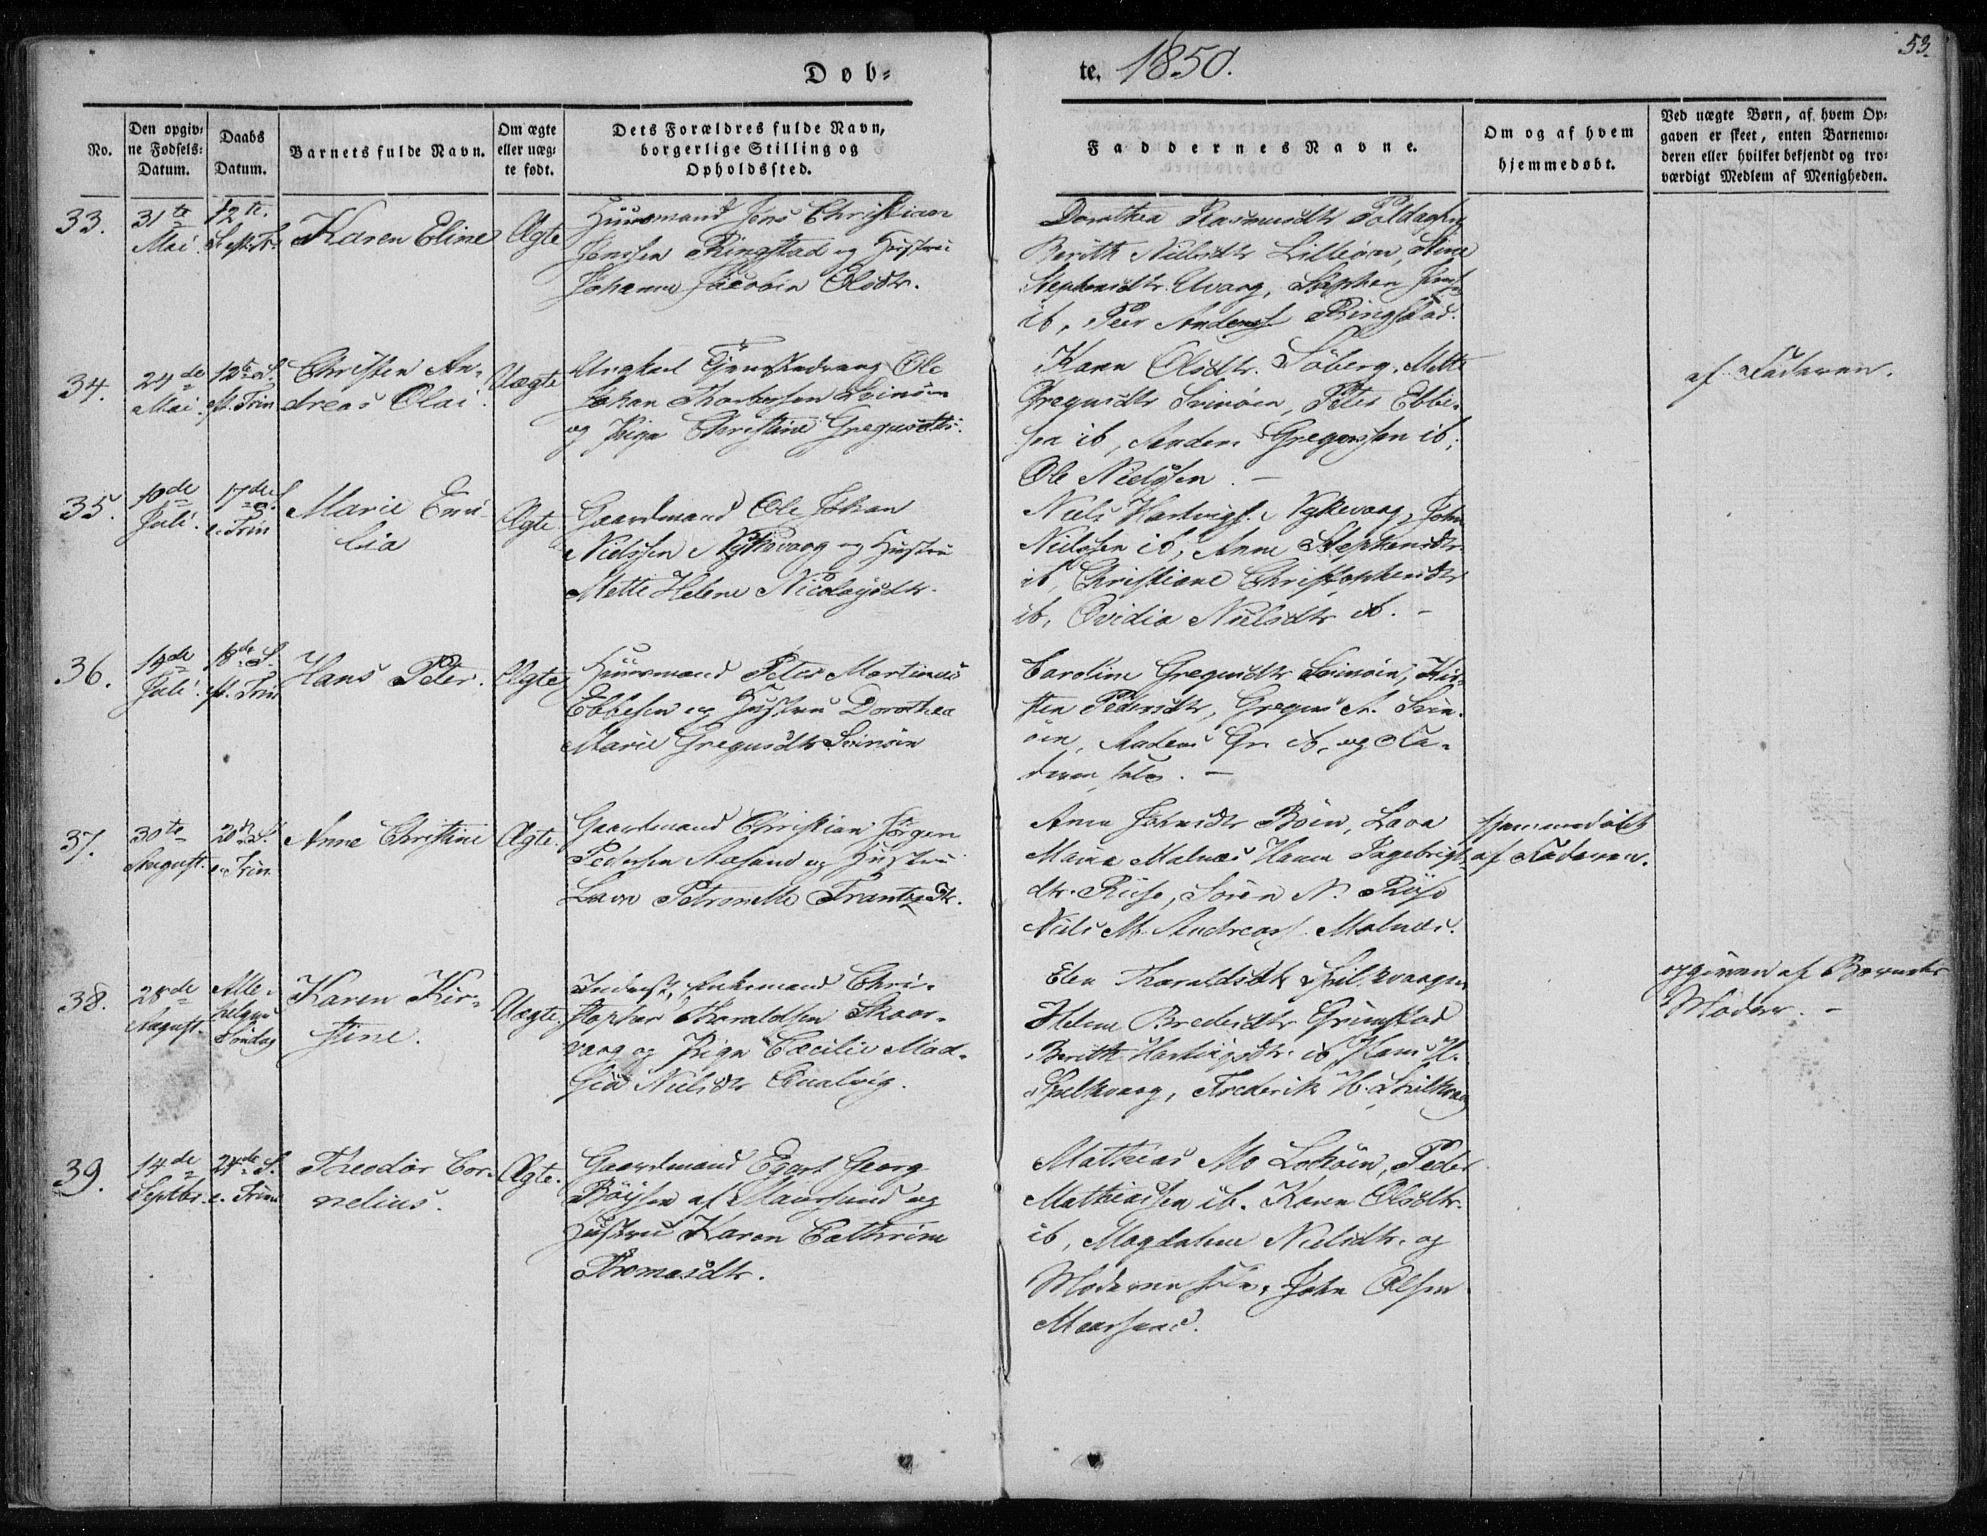 53.
Døb-
te. 1850.
No.
Den opgiv-
ne Fødsels-
Datum.
Daabs
Datum.
Barnets fulde Navn.
Om ægte
eller uæg-
te født.
Dets Forældres fulde Navn,
borgerlige Stilling og
Opholdssted.
Faddernes Navne.
Om og af hvem
hjemmedøbt.
Ved uægte Børn, af hvem Op-
gaven er skeet, enten Barnemo-
deren eller hvilket bekjendt og tro-
værdigt Medlem af Menigheden.
33.
31te
Mai
12te
Karen Eline
Ægte
Huusmand Jens Christian
Jensen Ringstad og Hustru
Johanna Jacobia Olsdtr.
Dorothea Rasmusdtr
Berith Nielsdtr Lilleøen, Stine
Stephensdtr. Elvaag, Stephen
ib, Peer Anders. Ringstad.
34.
24de
Mai
12te S.
ef. Trin
Christen An-
dreas Olai
Uægte
Ungkarl Ole
Johan Svinøen
og Pigen Christine Gregusdtr.
Olsdtr. Søberg, Mette
Gregusdtr Svinøen, Peter Ebbe-
sen ib, Anders Gregussen ib,
Ole Nielssen. -
af Faderen.
35.
10de
Juli
17de S.
e. Trin
Marie Emi-
lia
Ægte
Gaardmand Ole Johan
Nielssen Nykvaag og Hustru
Mette Helene Nicolaysdtr.
Niels Hartvigs. Nykevaag, John
Nielssen ib, Anne Stephensdtr.
ib, Christiane Christophersdtr
ib, Ovidia Nielsdtr ib. -
36.
19de
Juli
18de S.
ef. Trin
Hans Peter.
Ægte
Huusmand Peter Martinus
Ebbesen og Hustru Dorothea
Marie Gregusdtr Svinøen
Caroline Gregusdtr Svinøen, Kir-
sten Pedersdtr, Gregus A. Svin-
øen, Anders Gr. ib, og Fa-
deren selv. -
37.
30te
August.
20de S.
e. Trin
Anne Christine
Ægte.
Gaardmand Christian Jørgen
Pedersen og Hustru
Lava Petronelle Frantzdtr.
Anne Johnsdtr Bøen, Lava
Maria Malnæs Hanna Ingebrigt-
dtr. Riise, Søren N. Riise
Niels M. Andreas. Malnæs.
Hjemmedøbt
af Faderen.
38.
28de
August.
Alle-
helgens
Søndag
Karen Kir-
stine.
Uægte.
Inderst, Enkemand Chri-
stopher Haraldsen Skaar-
vaag og Pigen Cæcilie Mad-
Nielsdtr Qualvig.
Elen Haraldsdtr
Helene Bredesdtr Grimstad
Berith Hartvigsdtr. ib Hans H.
Spilkvaag, Frederik H. Spilkvaag
opgiven af Barnets
Moder. -
39.
14de
Septbr.
24de S.
e. Trin
Theodor Cor-
nelius.
Ægte.
Gaardmand Egert Georg
Bøysen af Maarsund og
Hustru Karen Cathrine
Thomasdtr.
Mathias Mo Lokøen, Peder
Mathiassen ib. Karen Olsdtr.
ib, Magdalena Nielsdtr. og
Moderen selv, John Olsen
Maarsund.